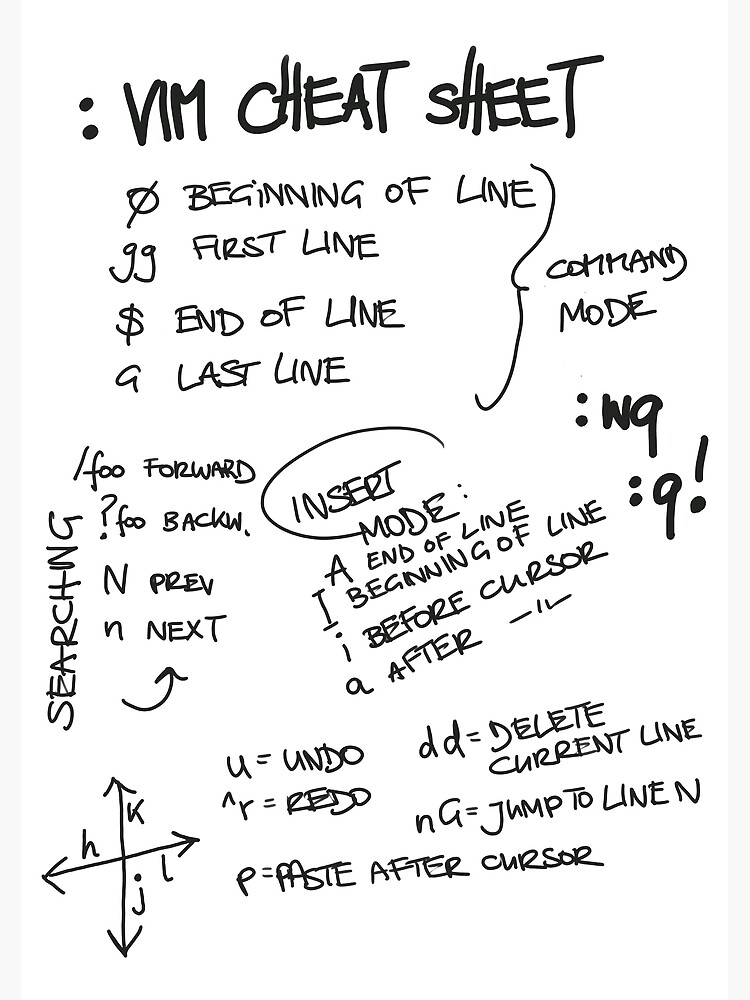 : VIM CHEAT SHEET
0 BEGINNING OF LINE
gg FIRST LINE
$ END OF LINE
G LAST LINE
COMMAND
MODE
:wq
:q!
SEARCHING
/foo FORWARD
?foo BACKW.
N PREV
n NEXT
INSERT
MODE:
A END OF LINE
I BEGINNING OF LINE
i BEFORE CURSOR
a AFTER —"—
u = UNDO
^r = REDO
dd = DELETE
CURRENT LINE
nG = JUMP TO LINE N
p = PASTE AFTER CURSOR
k
h
l
j